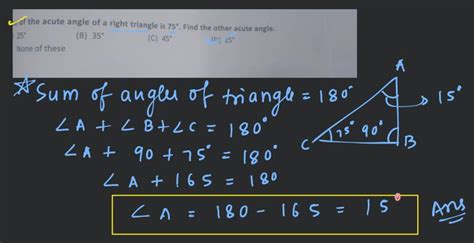 of the acute angle of a right triangle is 75°. Find the other acute angle.
25° (B) 35° (C) 45° (D) 15°
None of these
Sum of angles of triangle = 180°
∠A + ∠B + ∠C = 180°
∠A + 90 + 75° = 180°
∠A + 165 = 180
∠A = 180 - 165 = 15° Ans
A
15°
75° 90°
C
B